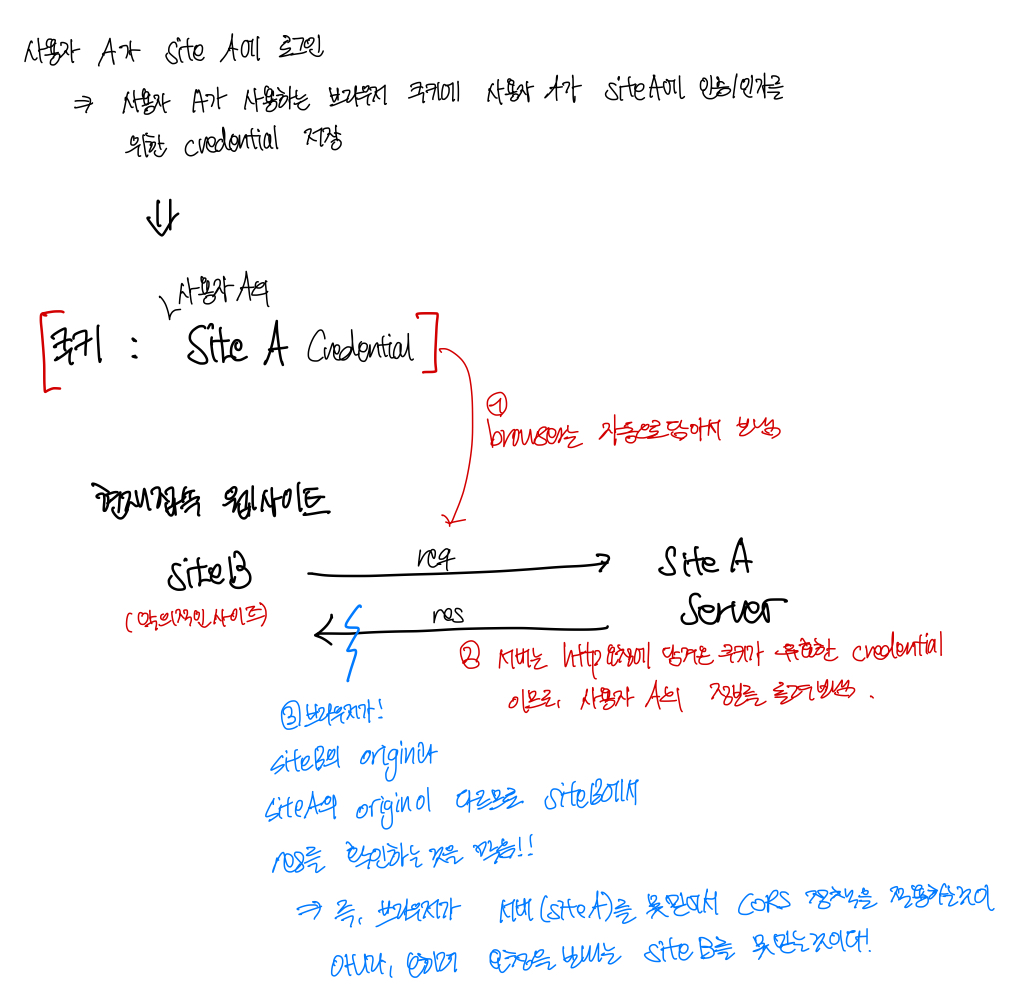 사용자 A가 site A에 로그인
⇒ 사용자 A가 사용하는 브라우저 쿠키에 사용자 A가 siteA에 인증/인가를
위한 credential 저장
⇓
사용자 A의
[쿠키 : Site A Credential]
①
browser는 자동으로 담아서 보냄
현재 접속 웹사이트
siteB
req
Site A
Server
(악의적인 사이트)
res
② 서버는 http 요청에 담겨온 쿠키가 유효한 credential
이므로, 사용자 A의 정보를 돌려보냄.
③ 브라우저가!
siteB의 origin과
siteA의 origin이 다르므로 siteB에서
res를 확인하는 것을 막음!!
⇒ 즉, 브라우저가 서버(siteA)를 못믿어서 CORS 정책을 적용하는것이
아니라, 오히려 요청을 보내는 site B를 못믿는것이다!